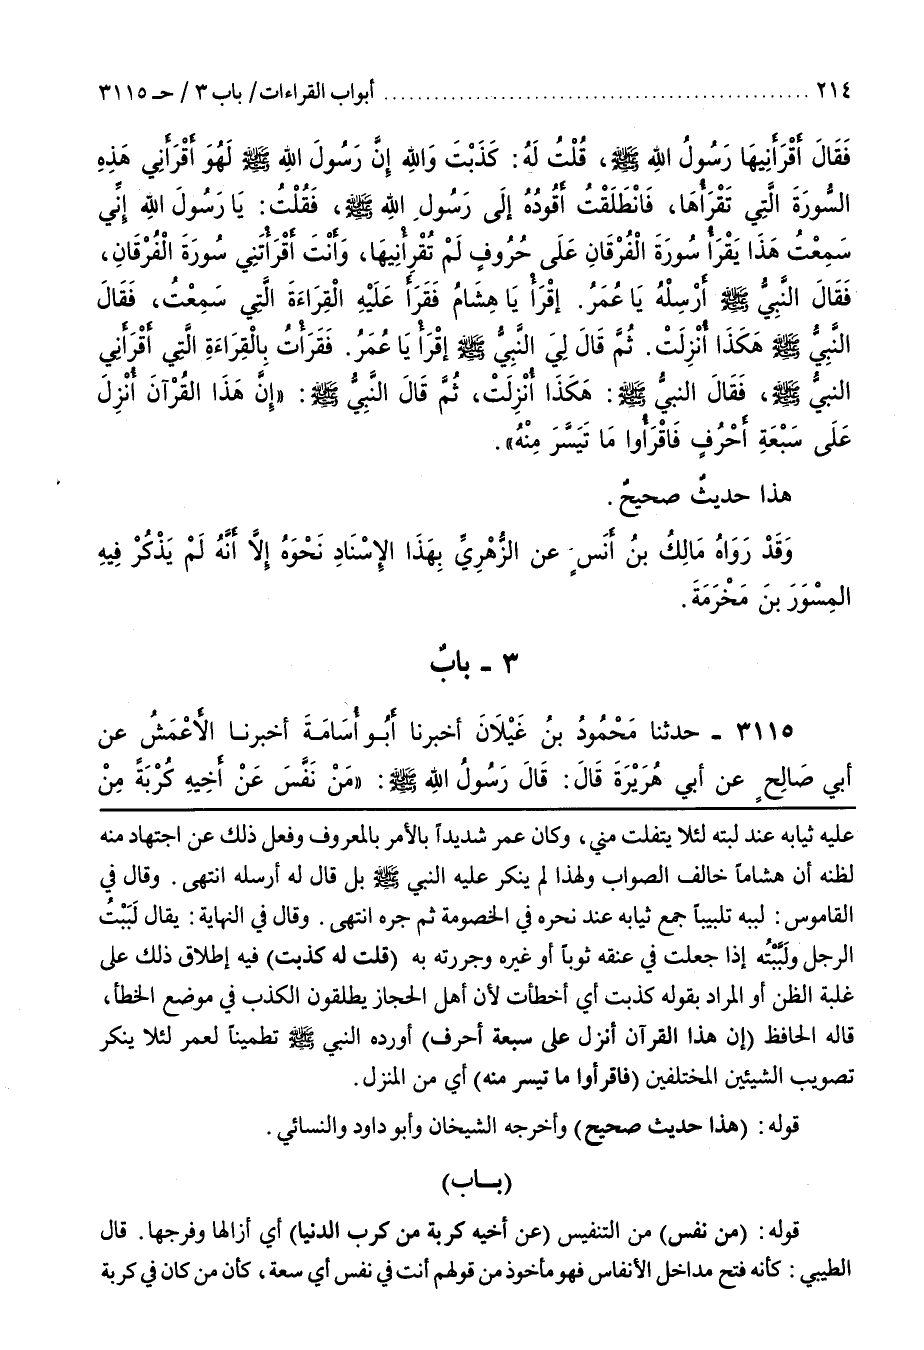 ٢١٤ ................................................ أبواب القراءات/ باب ٣ / حـ ٣١١٥
فَقَالَ أَقْرَأَنِيهَا رَسُولُ اللهِ ﷺ، قُلْتُ لَهُ: كَذَبْتَ وَاللهِ إِنَّ رَسُولَ اللهِ ﷺ لَهُوَ أَقْرَأَنِي هَذِهِ
السُّورَةَ الَّتِي تَقْرَأُهَا، فَانْطَلَقْتُ أَقُودُهُ إلَى رَسُولِ اللهِ ﷺ، فَقُلْتُ: يَا رَسُولَ اللهِ إِنِّي
سَمِعْتُ هَذَا يَقْرَأُ سُورَةَ الْفُرْقَانِ عَلَى حُرُوفٍ لَمْ تُقْرِأْنِيهَا، وَأَنْتَ أَقْرَأْتَنِي سُورَةَ الْفُرْقَانِ،
فَقَالَ النَّبِيُّ ﷺ أَرْسِلْهُ يَا عُمَرُ. إقْرَأْ يَا هِشَامُ فَقَرَأَ عَلَيْهِ الْقِرَاءَةَ الَّتِي سَمِعْتُ، فَقَالَ
النَّبِيُّ ﷺ هَكَذَا أُنْزِلَتْ. ثُمَّ قَالَ لِيَ النَّبِيُّ ﷺ إقْرَأْ يَا عُمَرُ. فَقَرَأْتُ بِالْقِرَاءَةِ الَّتِي أَقْرَأَنِي
النبيُّ ﷺ، فَقَالَ النبيُّ ﷺ: هَكَذَا أُنْزِلَتْ، ثُمَّ قَالَ النَّبِيُّ ﷺ: «إِنَّ هَذَا القُرْآنَ أُنْزِلَ
عَلَى سَبْعَةِ أَحْرُفٍ فَاقْرَأُوا مَا تَيَسَّرَ مِنْهُ».
هذا حديثٌ صحيحٌ.
وَقَدْ رَوَاهُ مَالِكُ بنُ أَنَسٍ عن الزُّهْرِيِّ بِهَذَا الإسْنَادِ نَحْوَهُ إلاَّ أَنَّهُ لَمْ يَذْكُرْ فِيهِ
المِسْوَرَ بنَ مَخْرَمَةَ.
٣ ـ بابٌ
٣١١٥ ـ حدثنا مَحْمُودُ بنُ غَيْلَانَ أخبرنا أَبُو أُسَامَةَ أخبرنا الأَعْمَشُ عن
أبي صَالِحٍ عن أبي هُرَيْرَةَ قَالَ: قَالَ رَسُولُ اللهِ ﷺ: «مَنْ نَفَّسَ عَنْ أَخِيهِ كُرْبَةً مِنْ
عليه ثيابه عند لبته لئلا يتفلت مني، وكان عمر شديداً بالأمر بالمعروف وفعل ذلك عن اجتهاد منه
لظنه أن هشاماً خالف الصواب ولهذا لم ينكر عليه النبي ﷺ بل قال له أرسله انتهى. وقال في
القاموس: لببه تلبيباً جمع ثيابه عند نحره في الخصومة ثم جره انتهى. وقال في النهاية: يقال لَبَبْتُ
الرجل ولَبَّبْتُه إذا جعلت في عنقه ثوباً أو غيره وجررته به (قلت له كذبت) فيه إطلاق ذلك على
غلبة الظن أو المراد بقوله كذبت أي أخطأت لأن أهل الحجاز يطلقون الكذب في موضع الخطأ،
قاله الحافظ (إن هذا القرآن أنزل على سبعة أحرف) أورده النبي ﷺ تطميناً لعمر لئلا ينكر
تصويب الشيئين المختلفين (فاقرأوا ما تيسر منه) أي من المنزل.
قوله: (هذا حديث صحيح) وأخرجه الشيخان وأبو داود والنسائي.
(بـاب)
قوله: (من نفس) من التنفيس (عن أخيه كربة من كرب الدنيا) أي أزالها وفرجها. قال
الطيبي: كأنه فتح مداخل الأنفاس فهو مأخوذ من قولهم أنت في نفس أي سعة، كأن من كان في كربة